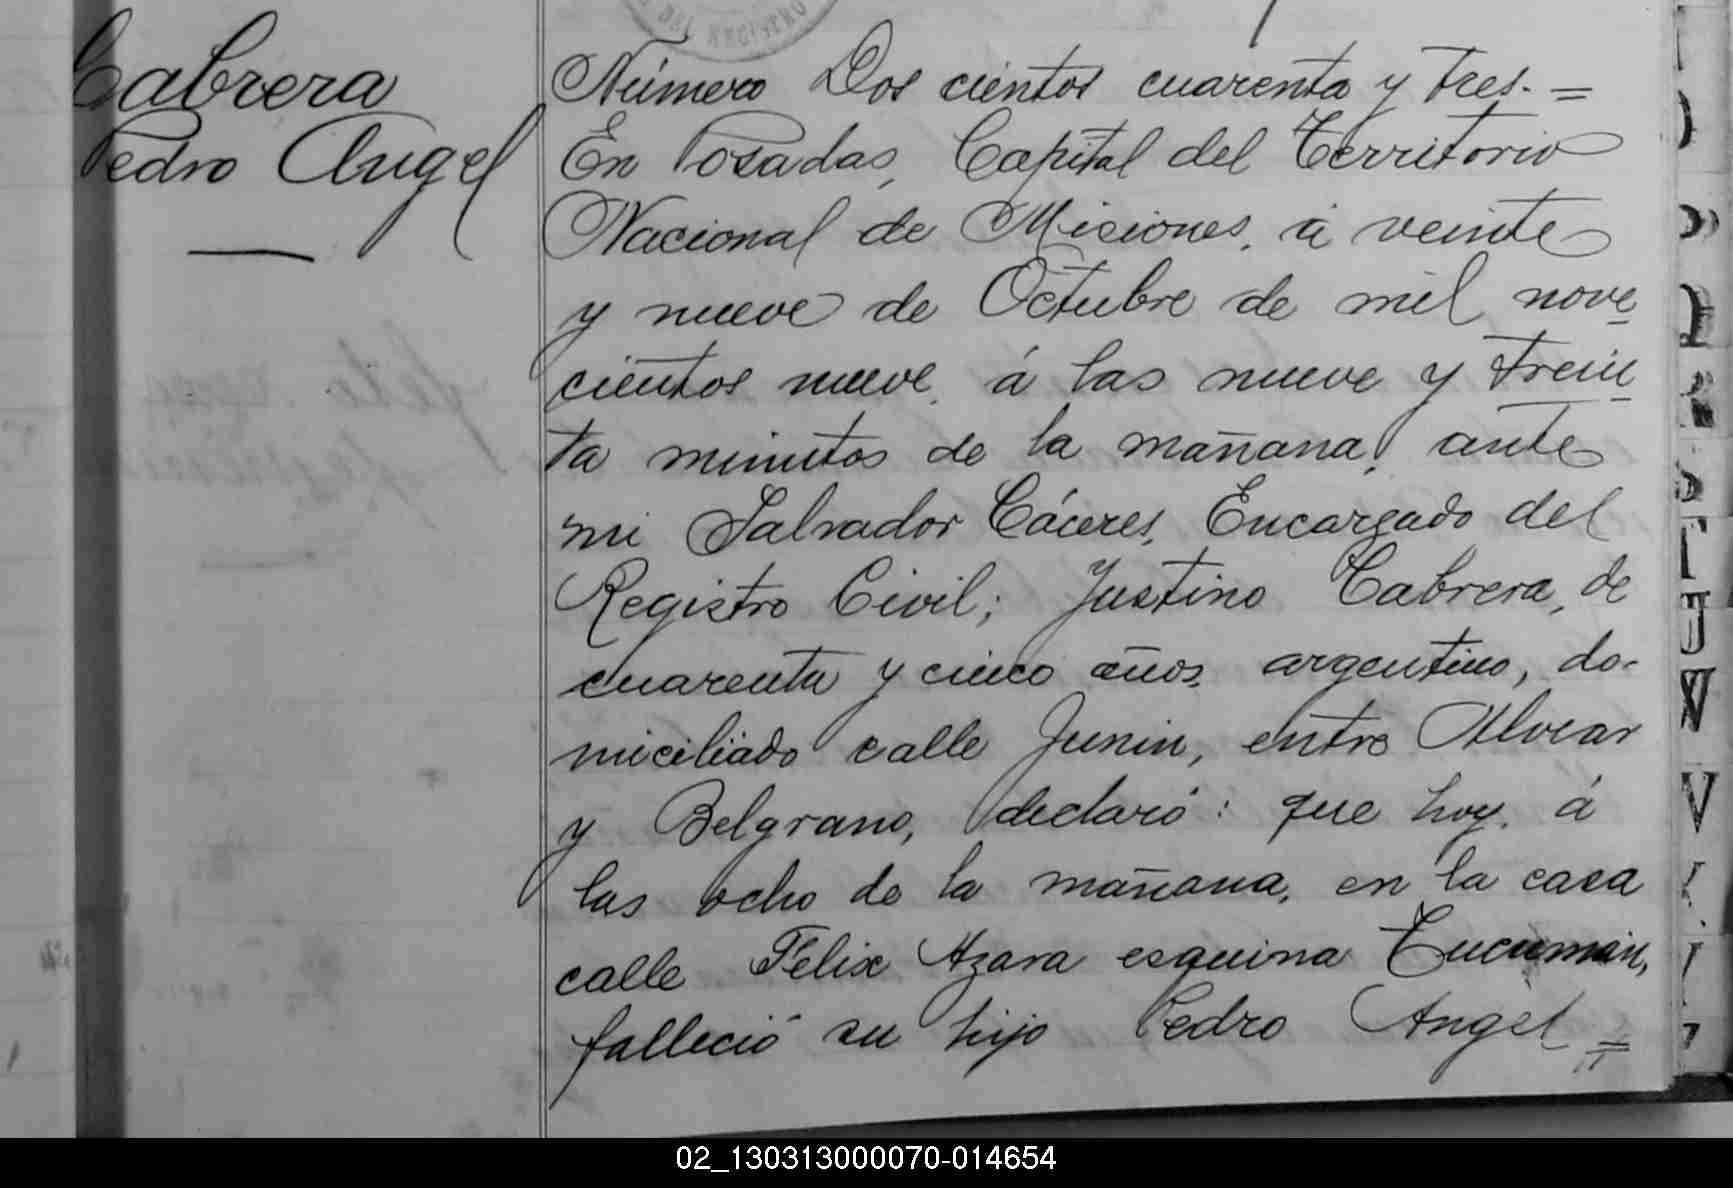 DEL REGISTRO
Cabrera
Pedro Angel
Número Dos cientos cuarenta y tres. =
En Posadas, Capital del Territorio
Nacional de Misiones, á veinte
y nueve de Octubre de mil nove
cientos nueve, á las nueve y trein
ta minutos de la mañana, ante
mi Salvador Cáceres, Encargado del
Registro Civil; Justino Cabrera, de
cuarenta y cinco años, argentino, do-
miciliado calle Junin, entre Alvear
y Belgrano, declaró: que hoy, á
las ocho de la mañana, en la casa
calle Felix Azara esquina Tucumán,
falleció su hijo Pedro Angel =
02_130313000070-014654